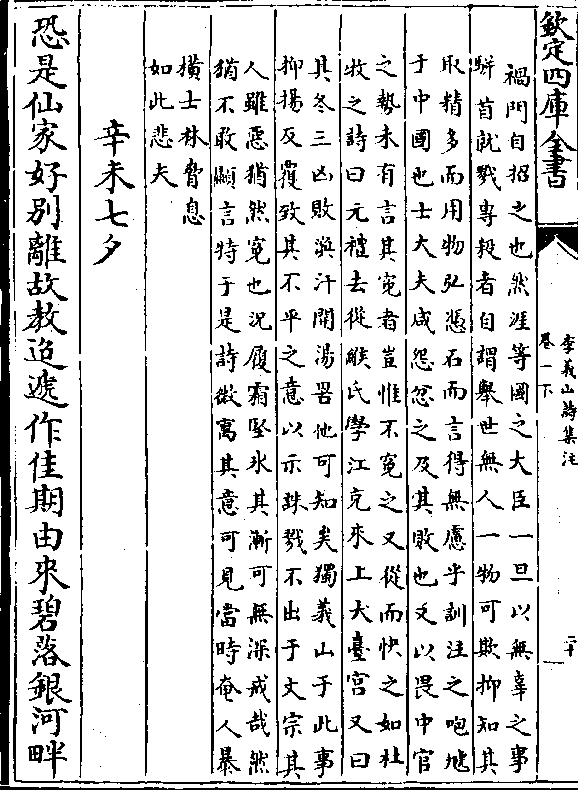 欽定四庫全書
李義山詩集注
卷一下
二十
禍門自招之也然涯等國之大臣一旦以無辜之事
駢首就戮專殺者自謂舉世無人一物可欺抑知其
取精多而用物弘憑石而言得無慮乎訓注之咆虓
于中國也士大夫咸怨忿之及其敗也又以畏中官
之勢未有言其寃者豈惟不寃之又從而快之如杜
牧之詩曰元禮去從緱氏學江充來上犬臺宮又曰
其冬三凶敗渙汗開湯罟他可知矣獨義山于此事
抑揚反覆致其不平之意以示殊戮不出于文宗其
人雖惡猶然寃也況履霜堅氷其漸可無深戒哉然
猶不敢顯言特于是詩微寓其意可見當時奄人暴
橫士林脅息
如此悲夫
辛未七夕
恐是仙家好別離故教迢遞作佳期由來碧落銀河畔